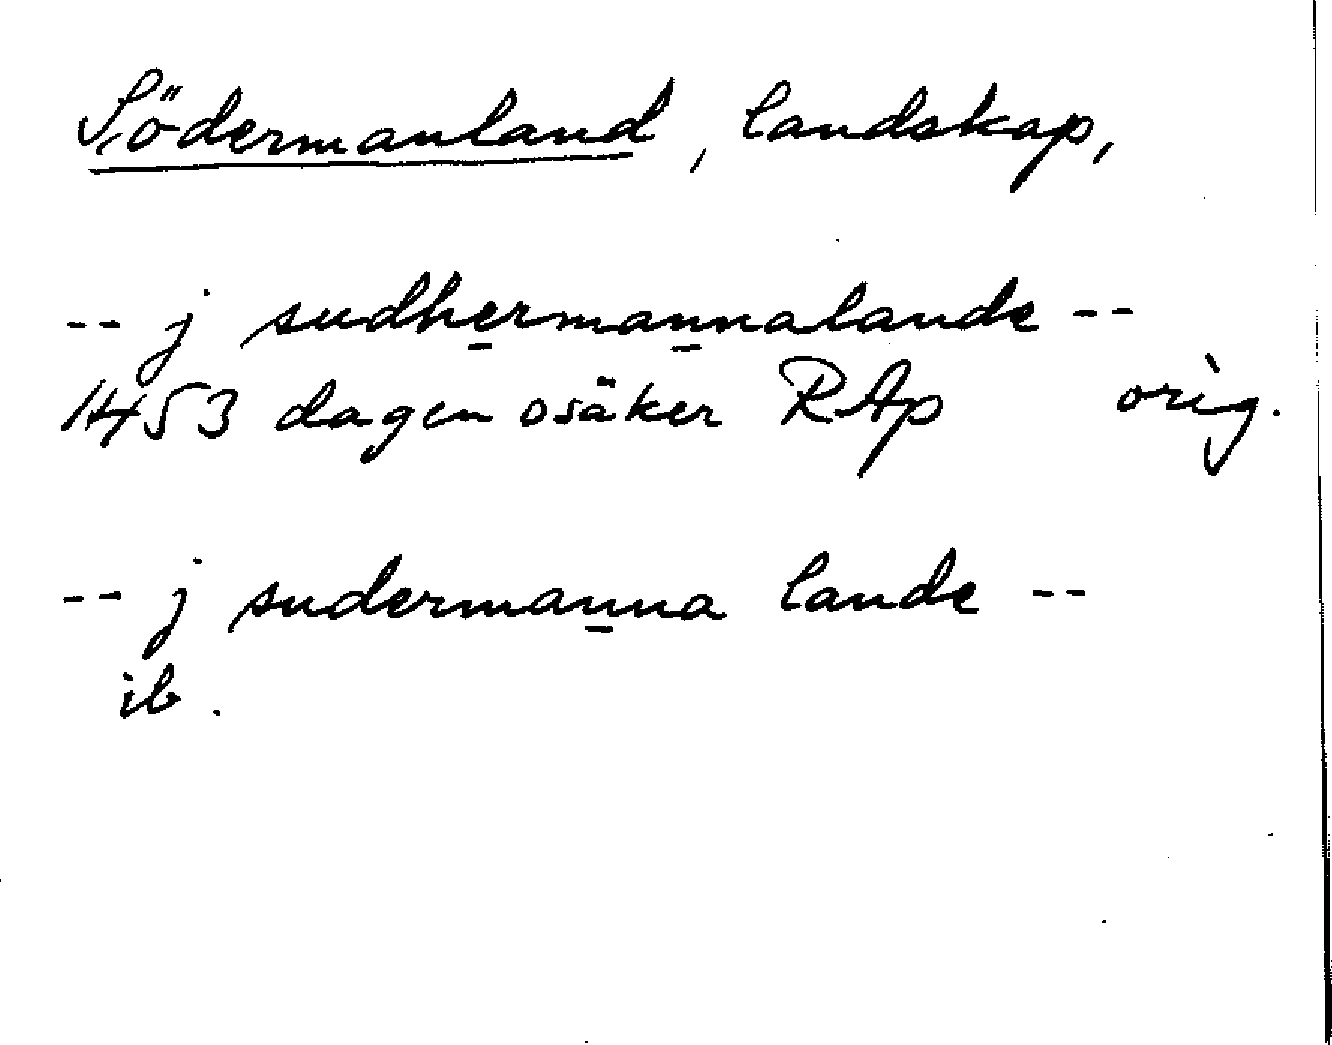 Södermanland, landskap,
-- j sudhermannalande --
1453 dagen osäker RAp orig.
-- j sudermanna lande --
ib.